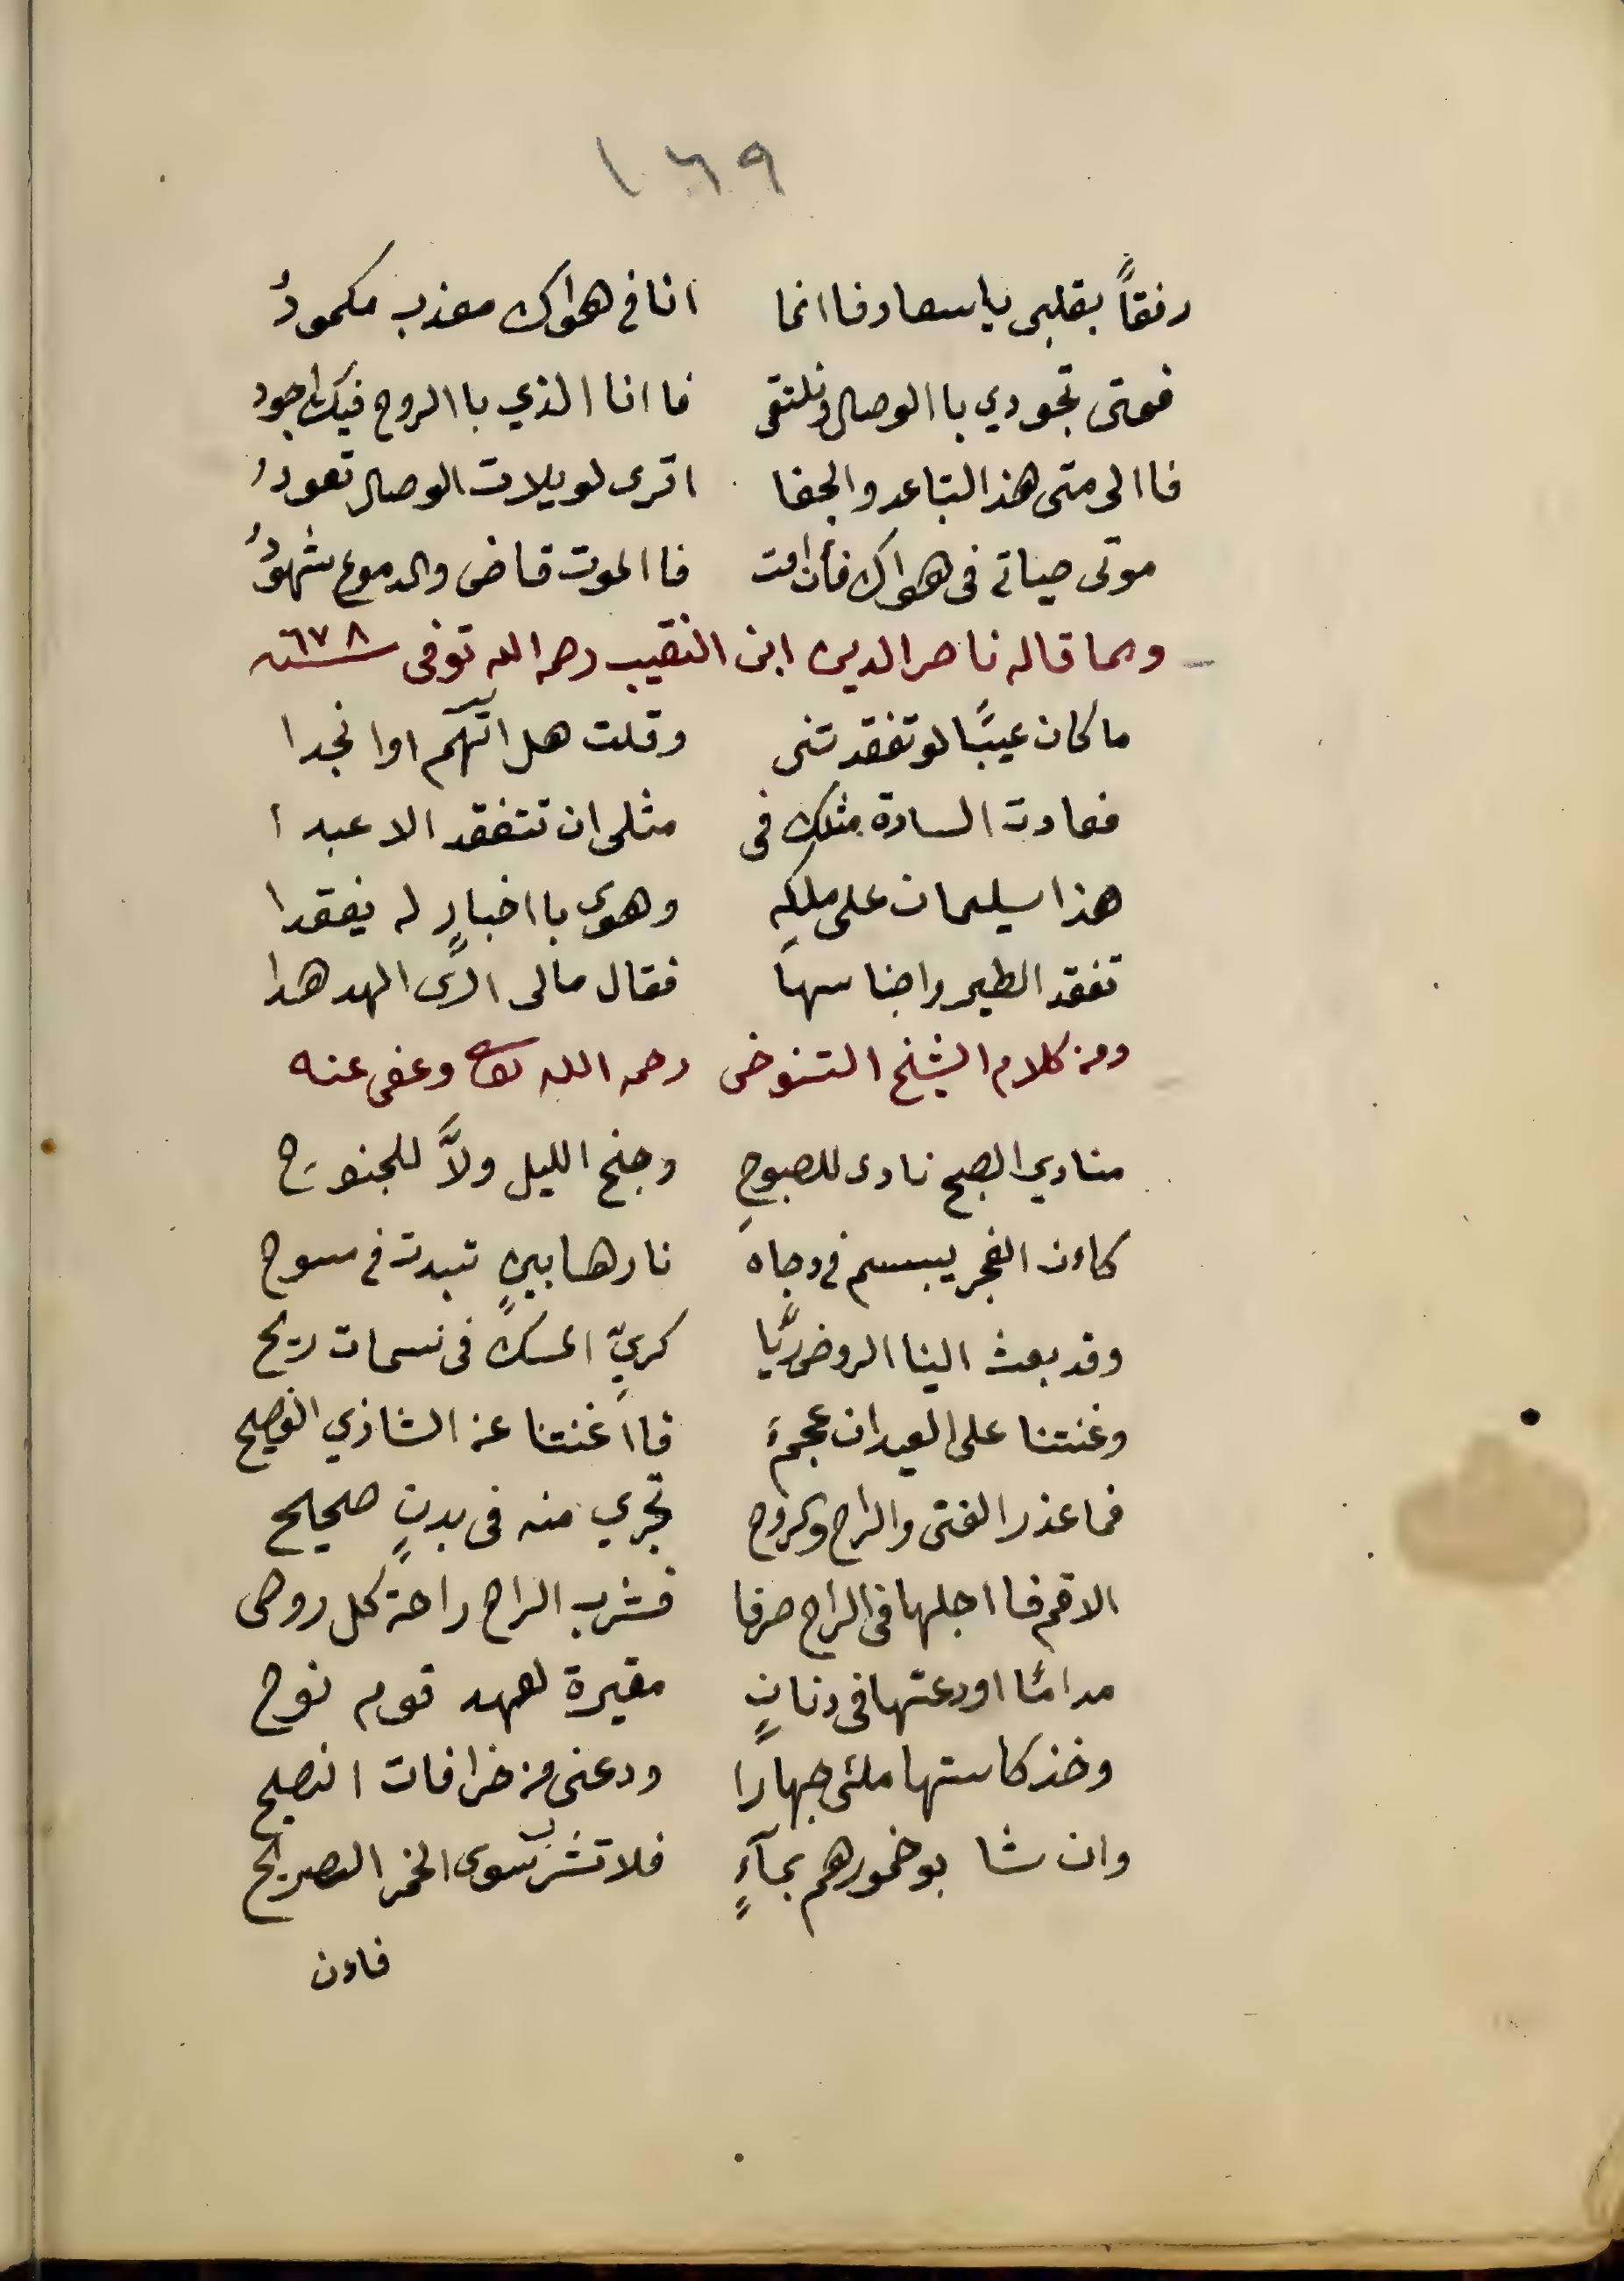 ١٦٩
رفقاً بقلبى ياسعاد فاانما انا فى هواك معذب مكمودُ
فمتى تجودي باالوصال ونلتقى فاانا الذي باالروح فيك اجود
فاالى متى هذ التباعد والجفا اترى لويلات الوصال تعودُ
موتى حياتى فى هواك فأن امت فاالموت قاضى والدموع شهودُ
ومما قاله ناصر الدين ابن النقيب رحمه الله توفى سنة ٦٧٨
ما كان عيبًا لو تفقدتنى وقلت هل اتهم اوانجدا
فعادت السادة مثلك فى مثلى ان تتفقد الاعبدا
هذا سليمان على ملكه وهوى بااخبارٍ له يفقدا
تفقد الطير واجناسها فقال مالى ارى الهدهدا
ومن كلام الشيخ التنوخى رحمه الله تعالى وعفى عنه
منادي الصبح نادى للصبوحِ وجنح الليل ولاَّ للجنوح
كاءن الفجر يبسم فى دجاه نارهابينٍ تبدت فى مسوح
وقد بعث الينا الروض ريَّا كريِّ المسك فى نسمات ريح
وغنتنا على العيدان عجمٌ فااغنتنا عن الشاذي الفصيح
فما عذر الفتى والراح وكروح تجري منه فى بدنٍ صحيح
الاقم فااجلها فى الراح صرفا فشرب الراح راحة كل روحى
مدامًا اودعتها فى دنانٍ مقيرة لعهد قوم نوح
وخذ كاستها ملئى جهارا ودعنى من خرافات النصيح
وان شابو خمورهم بمآءٍ فلا تشرب سوى الخمر الصريح
فاءن